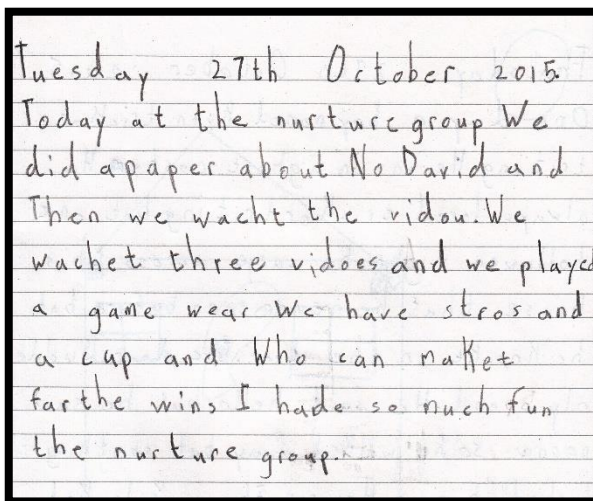 Tuesday 27th October 2015.
Today at the nurture group We
did apaper about No David and
Then we wacht the vidou. We
wachet three vidoes and we played
a game wear We have stros and
a cup and Who can maket
farthe wins I hade so much fun
the nurture group.